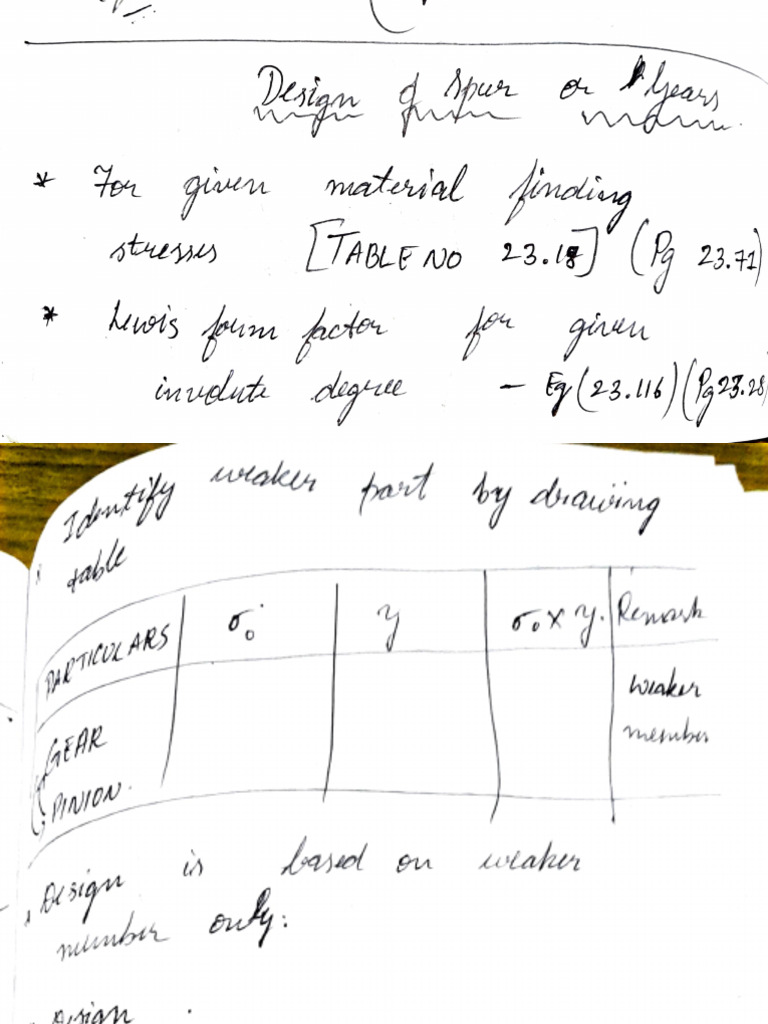 Design of Spur or Gears
* For given material finding
stresses [TABLE NO 23.18] (Pg 23.71)
* Lewis form factor for given
involute degree - Eq (23.116) (Pg 23.28)
Identify weaker part by drawing
table
PARTICULARS σ₀ y σ₀ × y. Remark
GEAR weaker
PINION. member
Design is based on weaker
member only:
Design